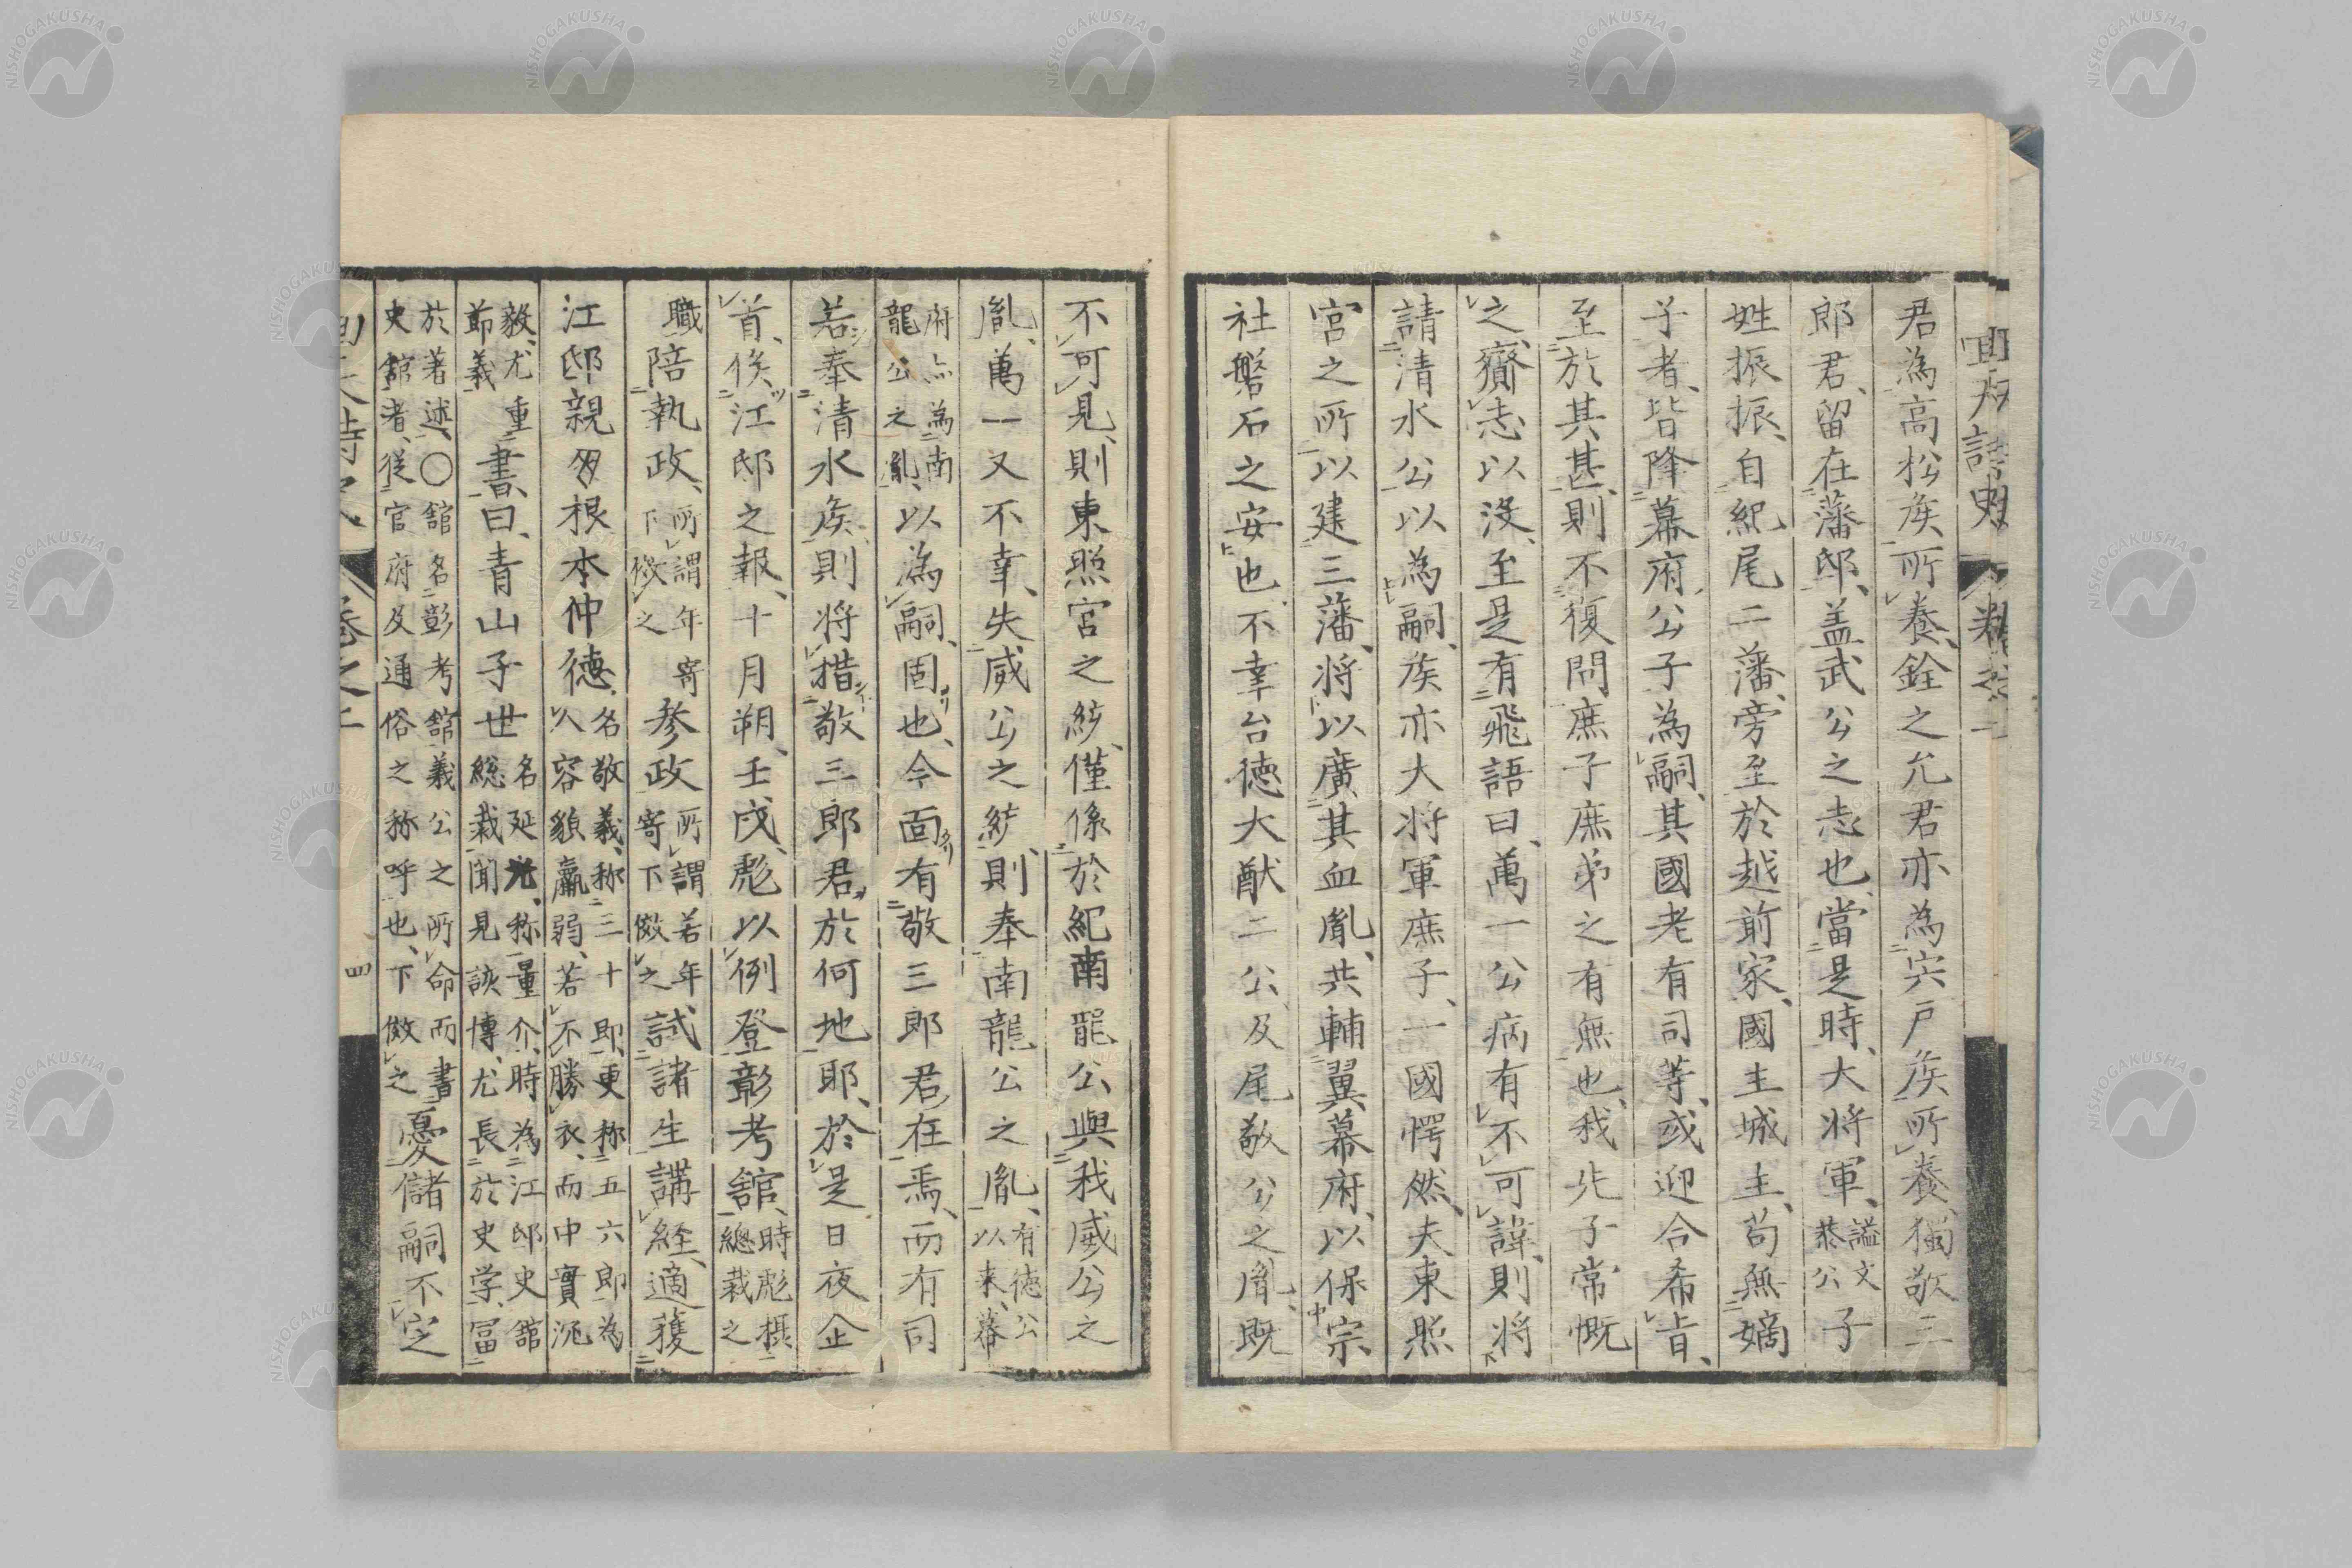 君為高松侯所養、銓之允君亦為宍戸侯所養、獨敬三
郎君、留在藩邸、盖武公之志也、當是時、大将軍、謚文恭公子
姓振振、自紀尾二藩、旁至於越前家、國主城主、苟無嫡
子者、皆降幕府公子為嗣、其國老有司等、或迎合希旨、
至於其甚、則不復問庶子庶弟之有無也、我先子常慨
之、齎志以没、至是有飛語曰、萬一公病有不可諱、則将
請清水公以為嗣、侯亦大将軍庶子、一國愕然、夫東照
宮之所以建三藩、将以廣其血胤、共輔翼幕府、以保宗
社磐石之安也、不幸台徳大猷二公、及尾敬公之胤、既
不可見、則東照宮之統、僅係於紀南龍公與我威公之
胤、萬一又不幸、失威公之統、則奉南龍公之胤、有徳公以来、幕
府亦為南龍公之胤、以為嗣、固也、今面有敬三郎君在焉、而有司
若奉清水侯、則将措敬三郎君、於何地耶、於是日夜企
首、俟江邸之報、十月朔、壬戌、彪以例登彰考舘、時彪摂総裁之
職陪執政、所謂年寄下傚之参政所謂若年寄下傚之試諸生講経、適獲
江邸親友根本仲徳、名敬義、称三十郎、更称五六郎、為人容貌羸弱、若不勝衣、而中實沉
毅、尤重節義書、曰、青山子世名延光、称量介、時為江邸史舘総裁、聞見該博、尤長於史学、冨
於著述、〇舘名彰考舘、義公之所命而書史舘者、従官府及通俗之称呼也、下傚之憂儲嗣不定
四